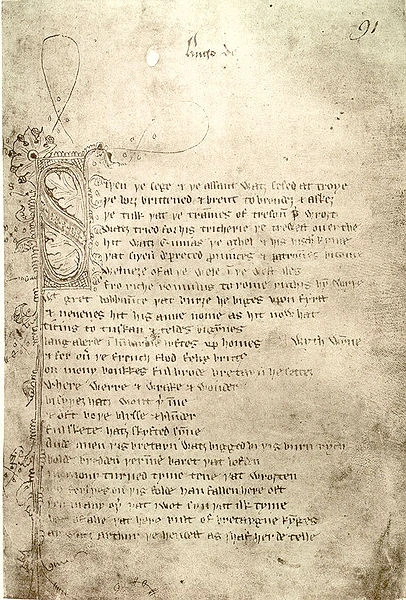 91
Hugo de
Siþen þe sege & þe assaut watz sesed at troye
þe borȝ brittened & brent to brondeȝ & askez
þe tulk þat þe trammes of tresoun þer wroȝt
watz tried for his tricherie þe trewest on erthe
hit watz ennias þe athel & his highe kynde
þat siþen depreced prouinces & patrounes bicome
welneȝe of al þe wele in þe west iles
fro riche romulus to rome ricchis hym swyþe
gret bobbaunce þat burȝe he biges vpon fyrst
& neuenes hit his aune nome as hit now hat
ticius to tuskan & teldes bigynnes
langaberde in lumbardie lyftes vp homes wyth wynne
& fer ouer þe french flod felix brutus
on mony bonkkes ful brode bretayn he settez
where werre & wrake & wonder
bi syþez hatz wont þerinne
& oft boþe blysse & blunder
ful skete hatz skyfted synne
Ande quen þis bretayn watz bigged bi þis burn rych
bolde bredden þerinne baret þat lofden
in mony turned tyme tene þat wroȝten
mo ferlyes on þis folde han fallen here oft
þen in any oþer þat I wot syn þat ilk tyme
bot of alle þat here bult of bretaygne kynges
ay watz arthur þe hendest as I haf herde telle